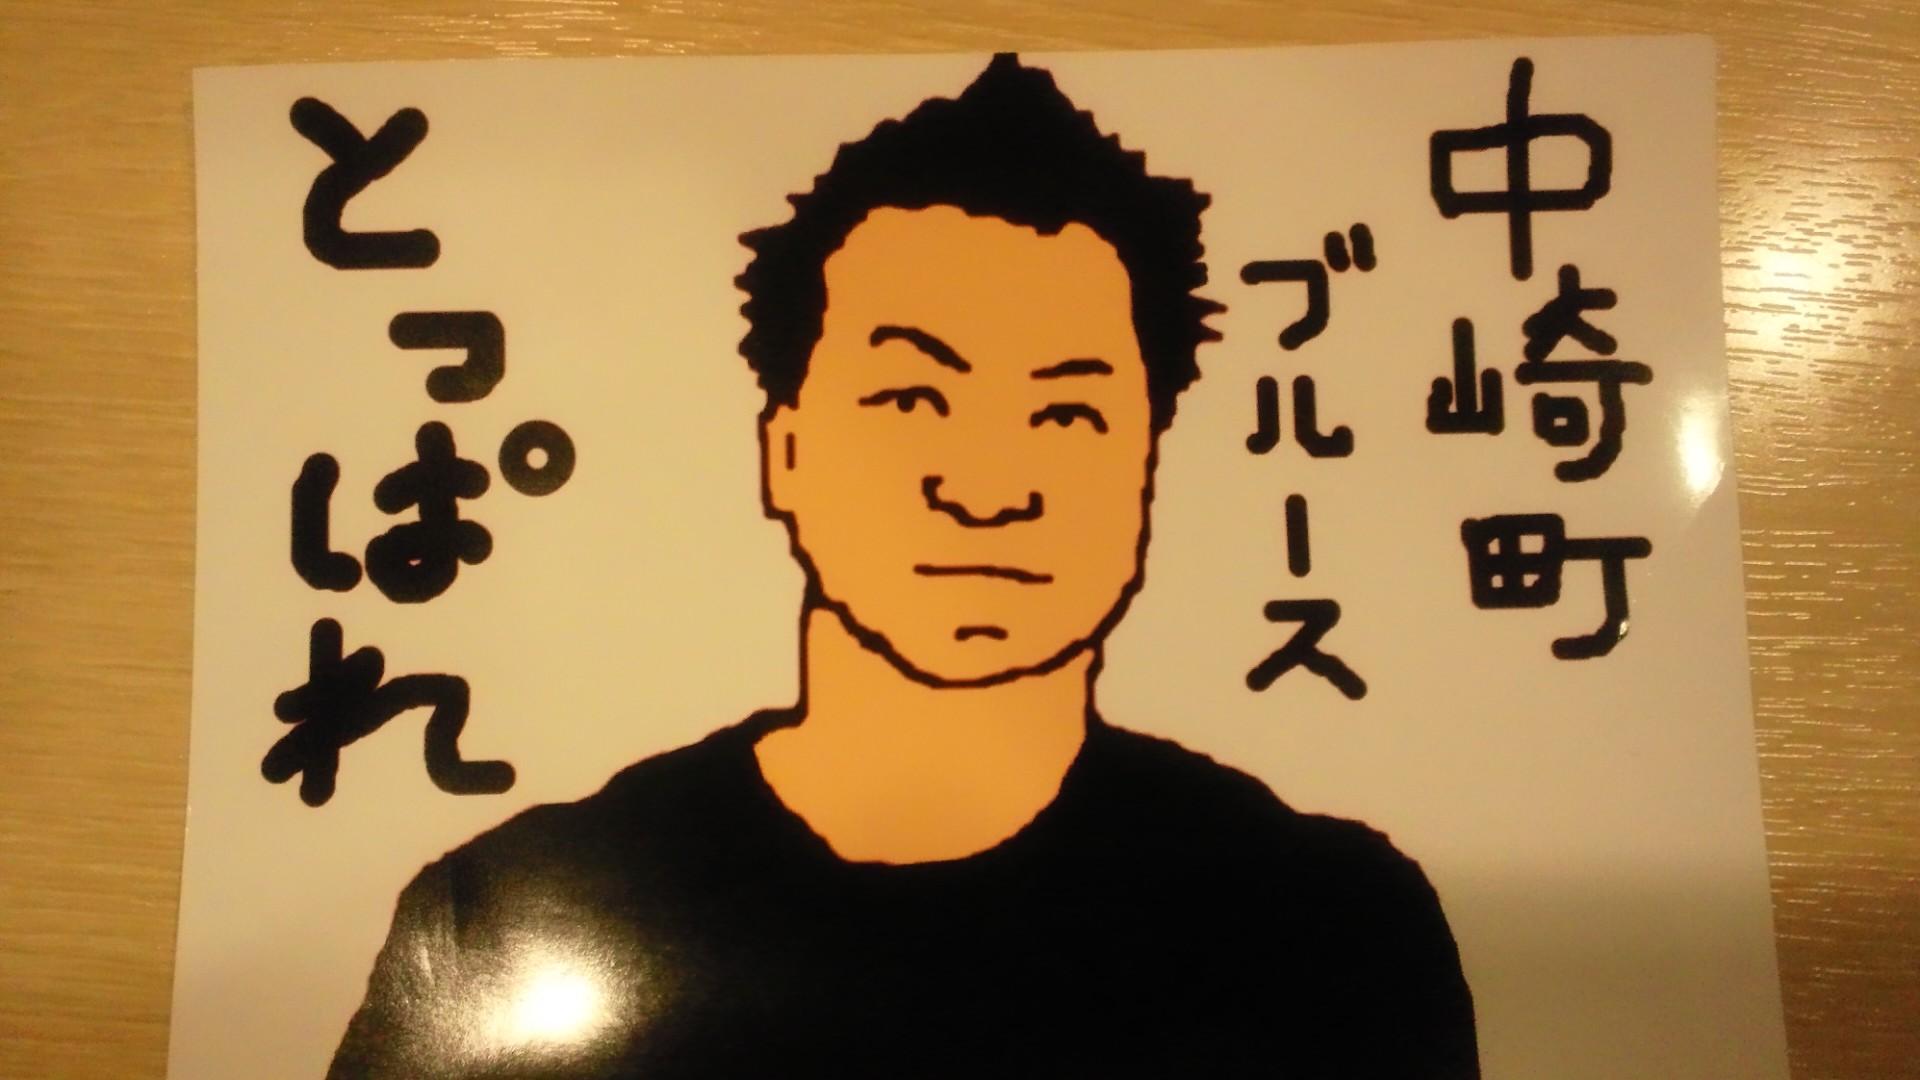 中崎町
ブルース
とっぱれ